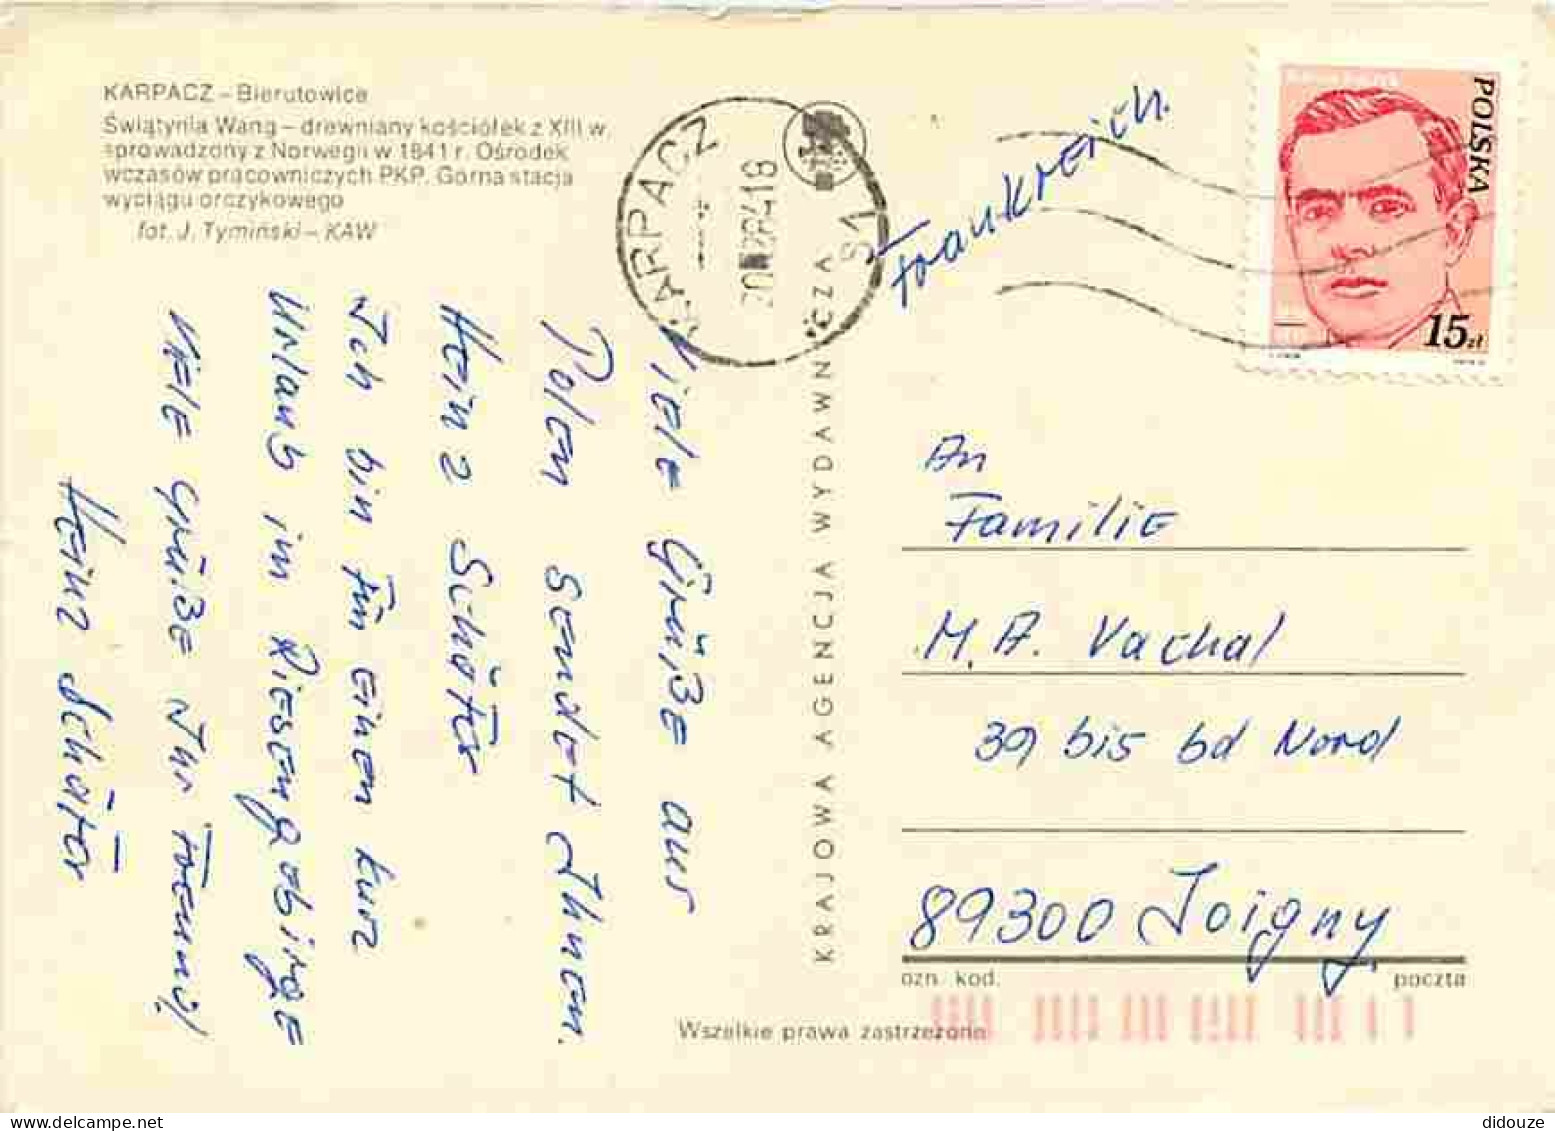 KARPACZ – Bierutowice
Świątynia Wang – drewniany kościółek z XIII w.
sprowadzony z Norwegii w 1841 r. Ośrodek
wczasów pracowniczych PKP. Górna stacja
wyciągu orczykowego
fot. J. Tymiński – KAW
KARPACZ 1
Frankreich.
POLSKA
15 zł
Viele Grüße aus
Polen sendet Ihnen.
Heinz Schäfer
Ich bin für einen kurz
Urlaub im Riesengebirge
Viele Grüße Ihr
Heinz Schäfer
KRAJOWA AGENCJA WYDAWNICZA
An
Familie
M. A. Vachal
39 bis bd Nord
89300 Joigny
ozn. kod.
poczta
Wszelkie prawa zastrzeżone
didouze